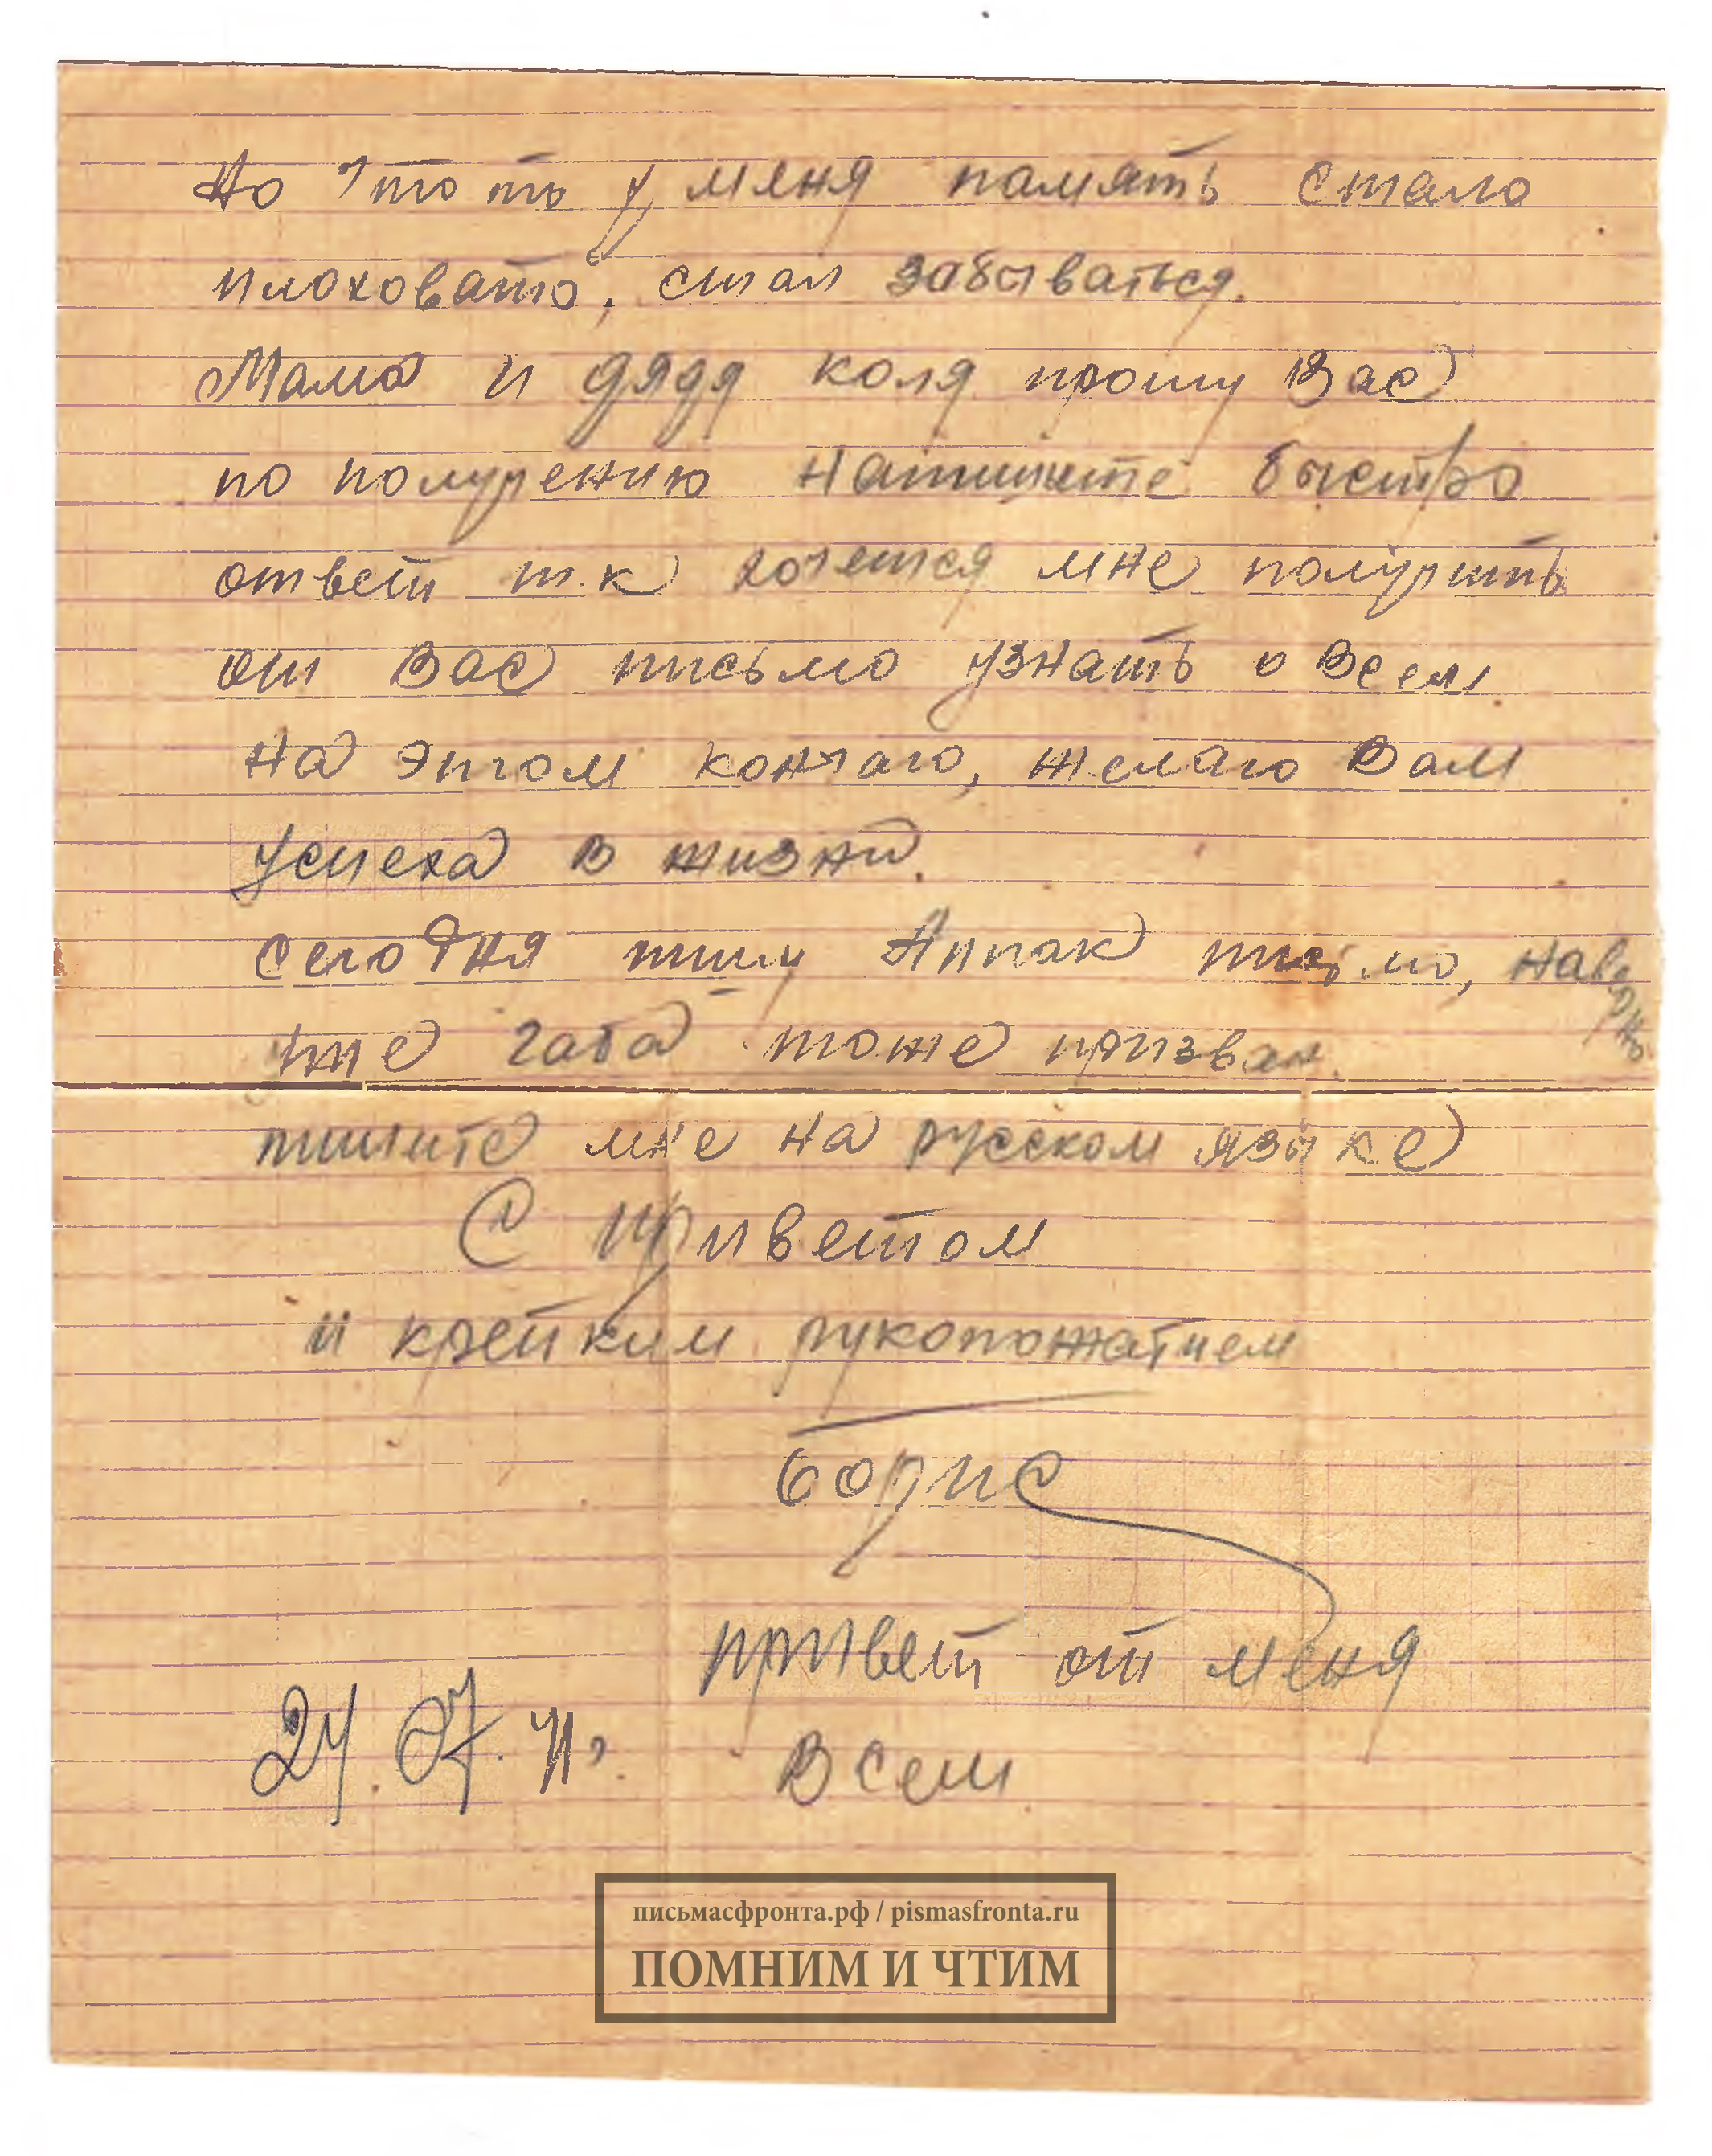 Но что то у меня память стало
плоховато, стал забываться.
Мама и дядя коля прошу Вас
по получению напишите быстро
ответ т.к хочется мне получить
от Вас письмо узнать о всем.
На этом кончаю, желаю Вам
успеха в жизни.
Сегодня пишу Аппак письмо, наверно
уже Габа тоже призван.
пишите мне на русском языке
С приветом
и крепким рукопожатием
Борис
привет от меня
всем
24.07.
письмасфронта.рф / pismasfronta.ru
ПОМНИМ И ЧТИМ